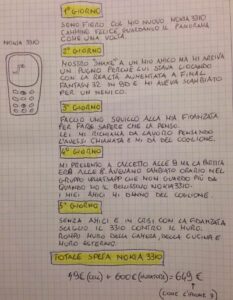 1° GIORNO
SONO FIERO COL MIO NUOVO NOKIA 3310
CAMMINO FELICE GUARDANDO IL PANORAMA
COME UNA VOLTA.
NOKIA 3310
2° GIORNO
MOSTRO SNAKE A UN MIO AMICO MA MI ARRIVA
UN PUGNO PERCHÉ LUI STAVA GIOCANDO
CON LA REALTÀ AUMENTATA A FINAL
FANTASY 32 IN 8D E MI AVEVA SCAMBIATO
PER UN NEMICO.
3° GIORNO
FACCIO UNO SQUILLO ALLA MIA FIDANZATA
PER FARLE SAPERE CHE LA PENSO.
LEI MI RICHIAMA DA LAVORO PENSANDO
L'AVESSI CHIAMATA E MI DÀ DEL COGLIONE.
4° GIORNO
MI PRESENTO A CALCETTO ALLE 9 MA LA PARTITA
ERA ALLE 8. AVEVANO CAMBIATO ORARIO NEL
GRUPPO WHATSAPP CHE NON GUARDO PIÙ DA
QUANDO HO IL BELLISSIMO NOKIA 3310.
I MIEI AMICI MI DANNO DEL COGLIONE
5° GIORNO
SENZA AMICI E IN CRISI CON LA FIDANZATA
SCAGLIO IL 3310 CONTRO IL MURO.
ROMPO MURO DELLA CAMERA, DELLA CUCINA E
MURO ESTERNO.
TOTALE SPESA NOKIA 3310
49€ (CELL) + 600€ (MURATORE) = 649 €
(COME L'IPHONE 7)